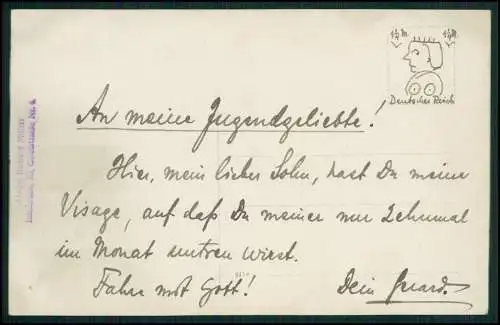 1½ M 1½ M
Deutsches Reich
An meine Jugendgeliebte!
Hier, mein lieber Sohn, hast Du meine
Visage, auf daß Du meiner nur 2ehnmal
im Monat untreu wirst.
Fahre mit Gott! Dein